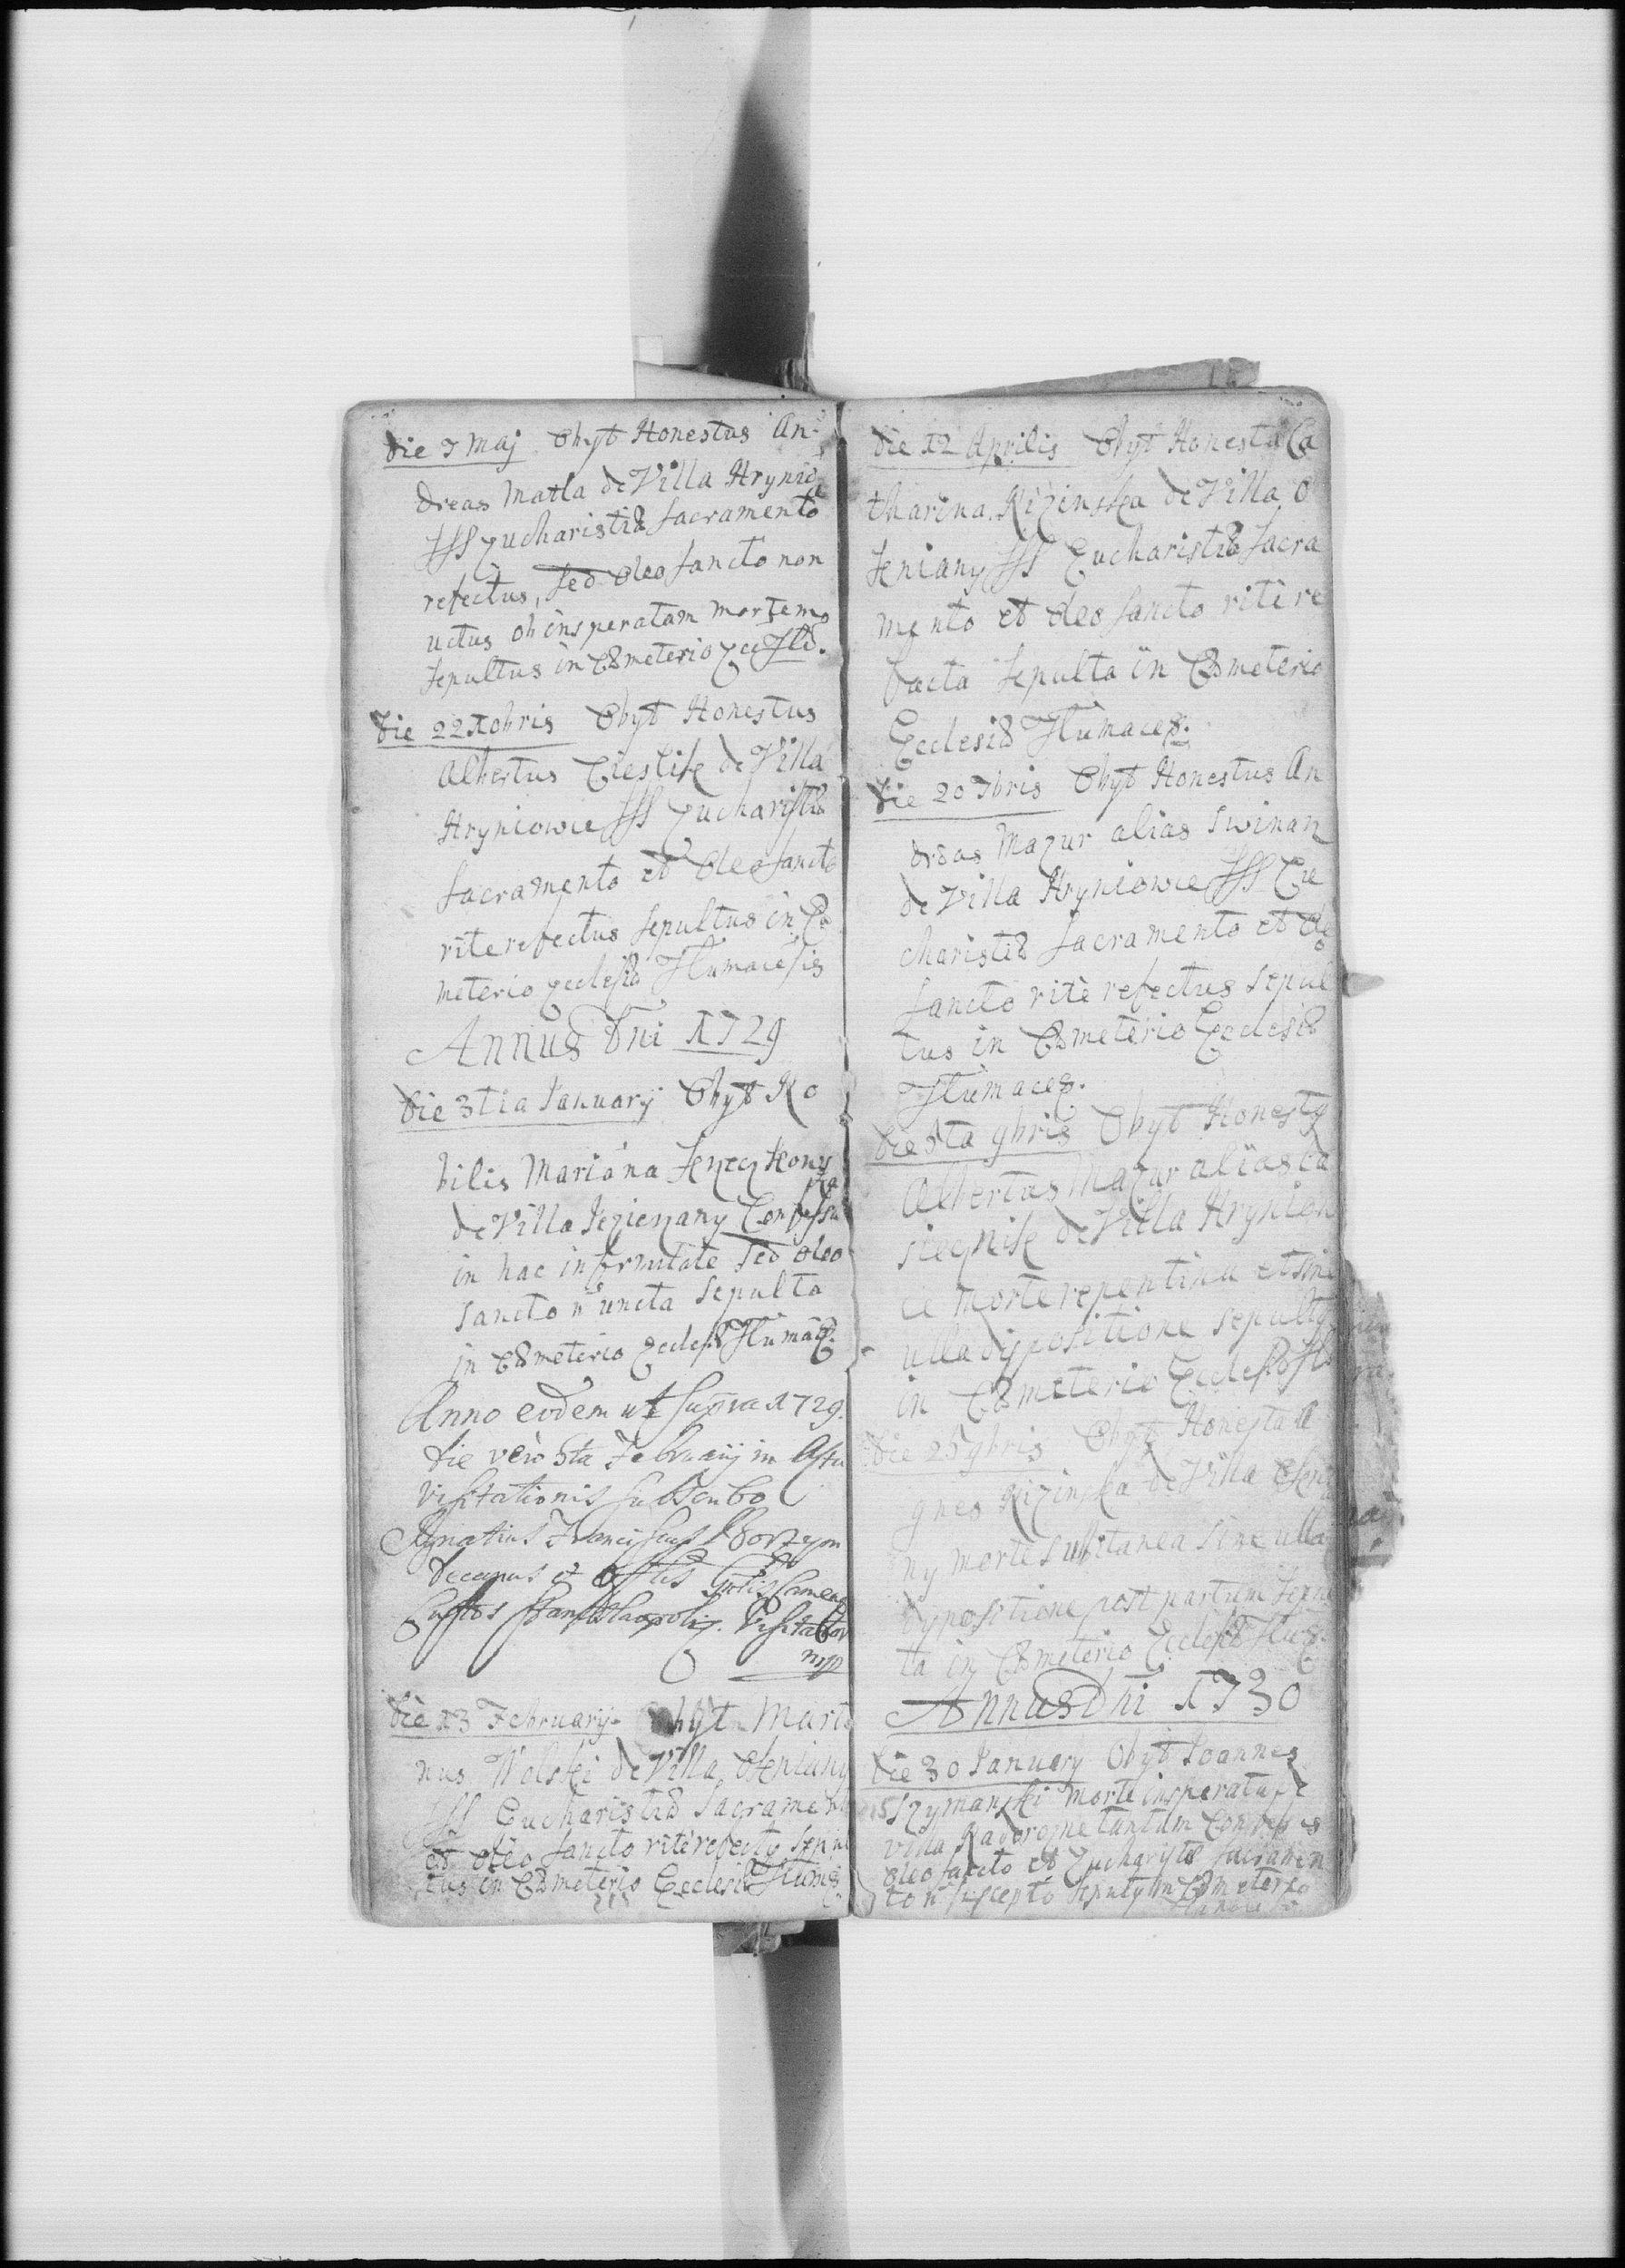 Die 7 Maj Obyt Honestus An-
dreas Matla de Villa Hrynio
SSS Eucharistiæ Sacramento
refectus, sed Oleo Sancto non
uctus ob insperatam mortem
Sepultus in Cœmeterio
Die 22 Xbris Obyt Honestus
Albertus Cieslik de Villa
Hryniowce SSS Eucharistiæ
Sacramento et Oleo Sancto
rite refectus Sepultus in Cœ
meterio Ecclesiæ Tlumacesis
Annus Dni 1729
Die 3tia January Obyt No
bilis Mariana
de Villa Jezierzany Confessa
in hac infirmitate sed Oleo
Sancto n uncta Sepulta
in Cœmeterio Ecclesiæ Tlumac.
Anno eodem ut Supra 1729.
Die vero 5ta Februarij in Actu
Visitationis Subscribo
Ignatius Franciscus
Decanus et
Custos Stanislaopolis. Visitator
mpp
Die 13 February Obyt Marti
nus Wolski de Villa Oleniany
SSS Eucharistiæ Sacramen
et Oleo Sancto rite refectus Sepul
tus in Cœmeterio Ecclesiæ
Die 12 Aprilis Obyt Honesta Ca
tharina Rizinska de Villa O
leniany SSS Eucharistiæ Sacra
mento et Oleo Sancto ritè re
fecta Sepulta in Cœmeterio
Ecclesiæ Tlumaces.
Die 20 7bris Obyt Honestus An
dreas Mazur alias Swinan
de Villa Hryniowce SSS Eu
charistiæ Sacramento et Ole
Sancto ritè refectus Sepul
tus in Cœmeterio Ecclesiæ
Tlumaces.
Die 8ta 9bris Obyt Honesty
Albertus Mazur alias
de Villa Hryniow
ce morte repentina et sine
ulla dispositione sepulty
in Cœmeterio Ecclesiæ
Die 25 9bris Obyt Honesta A
gnes Rizinska de Villa Olenia
ny morte subitanea sine ulla
dypositione post partum Sepul
ta in Cœmeterio Ecclesiæ
Annus Dni 1730
Die 30 January Obyt Joannes
Szymanski morte insperata de
villa tantum Confessus
Oleo sancto et Eucharistiæ Sacramen
to n suscepto Sepulty in Cœmeterio